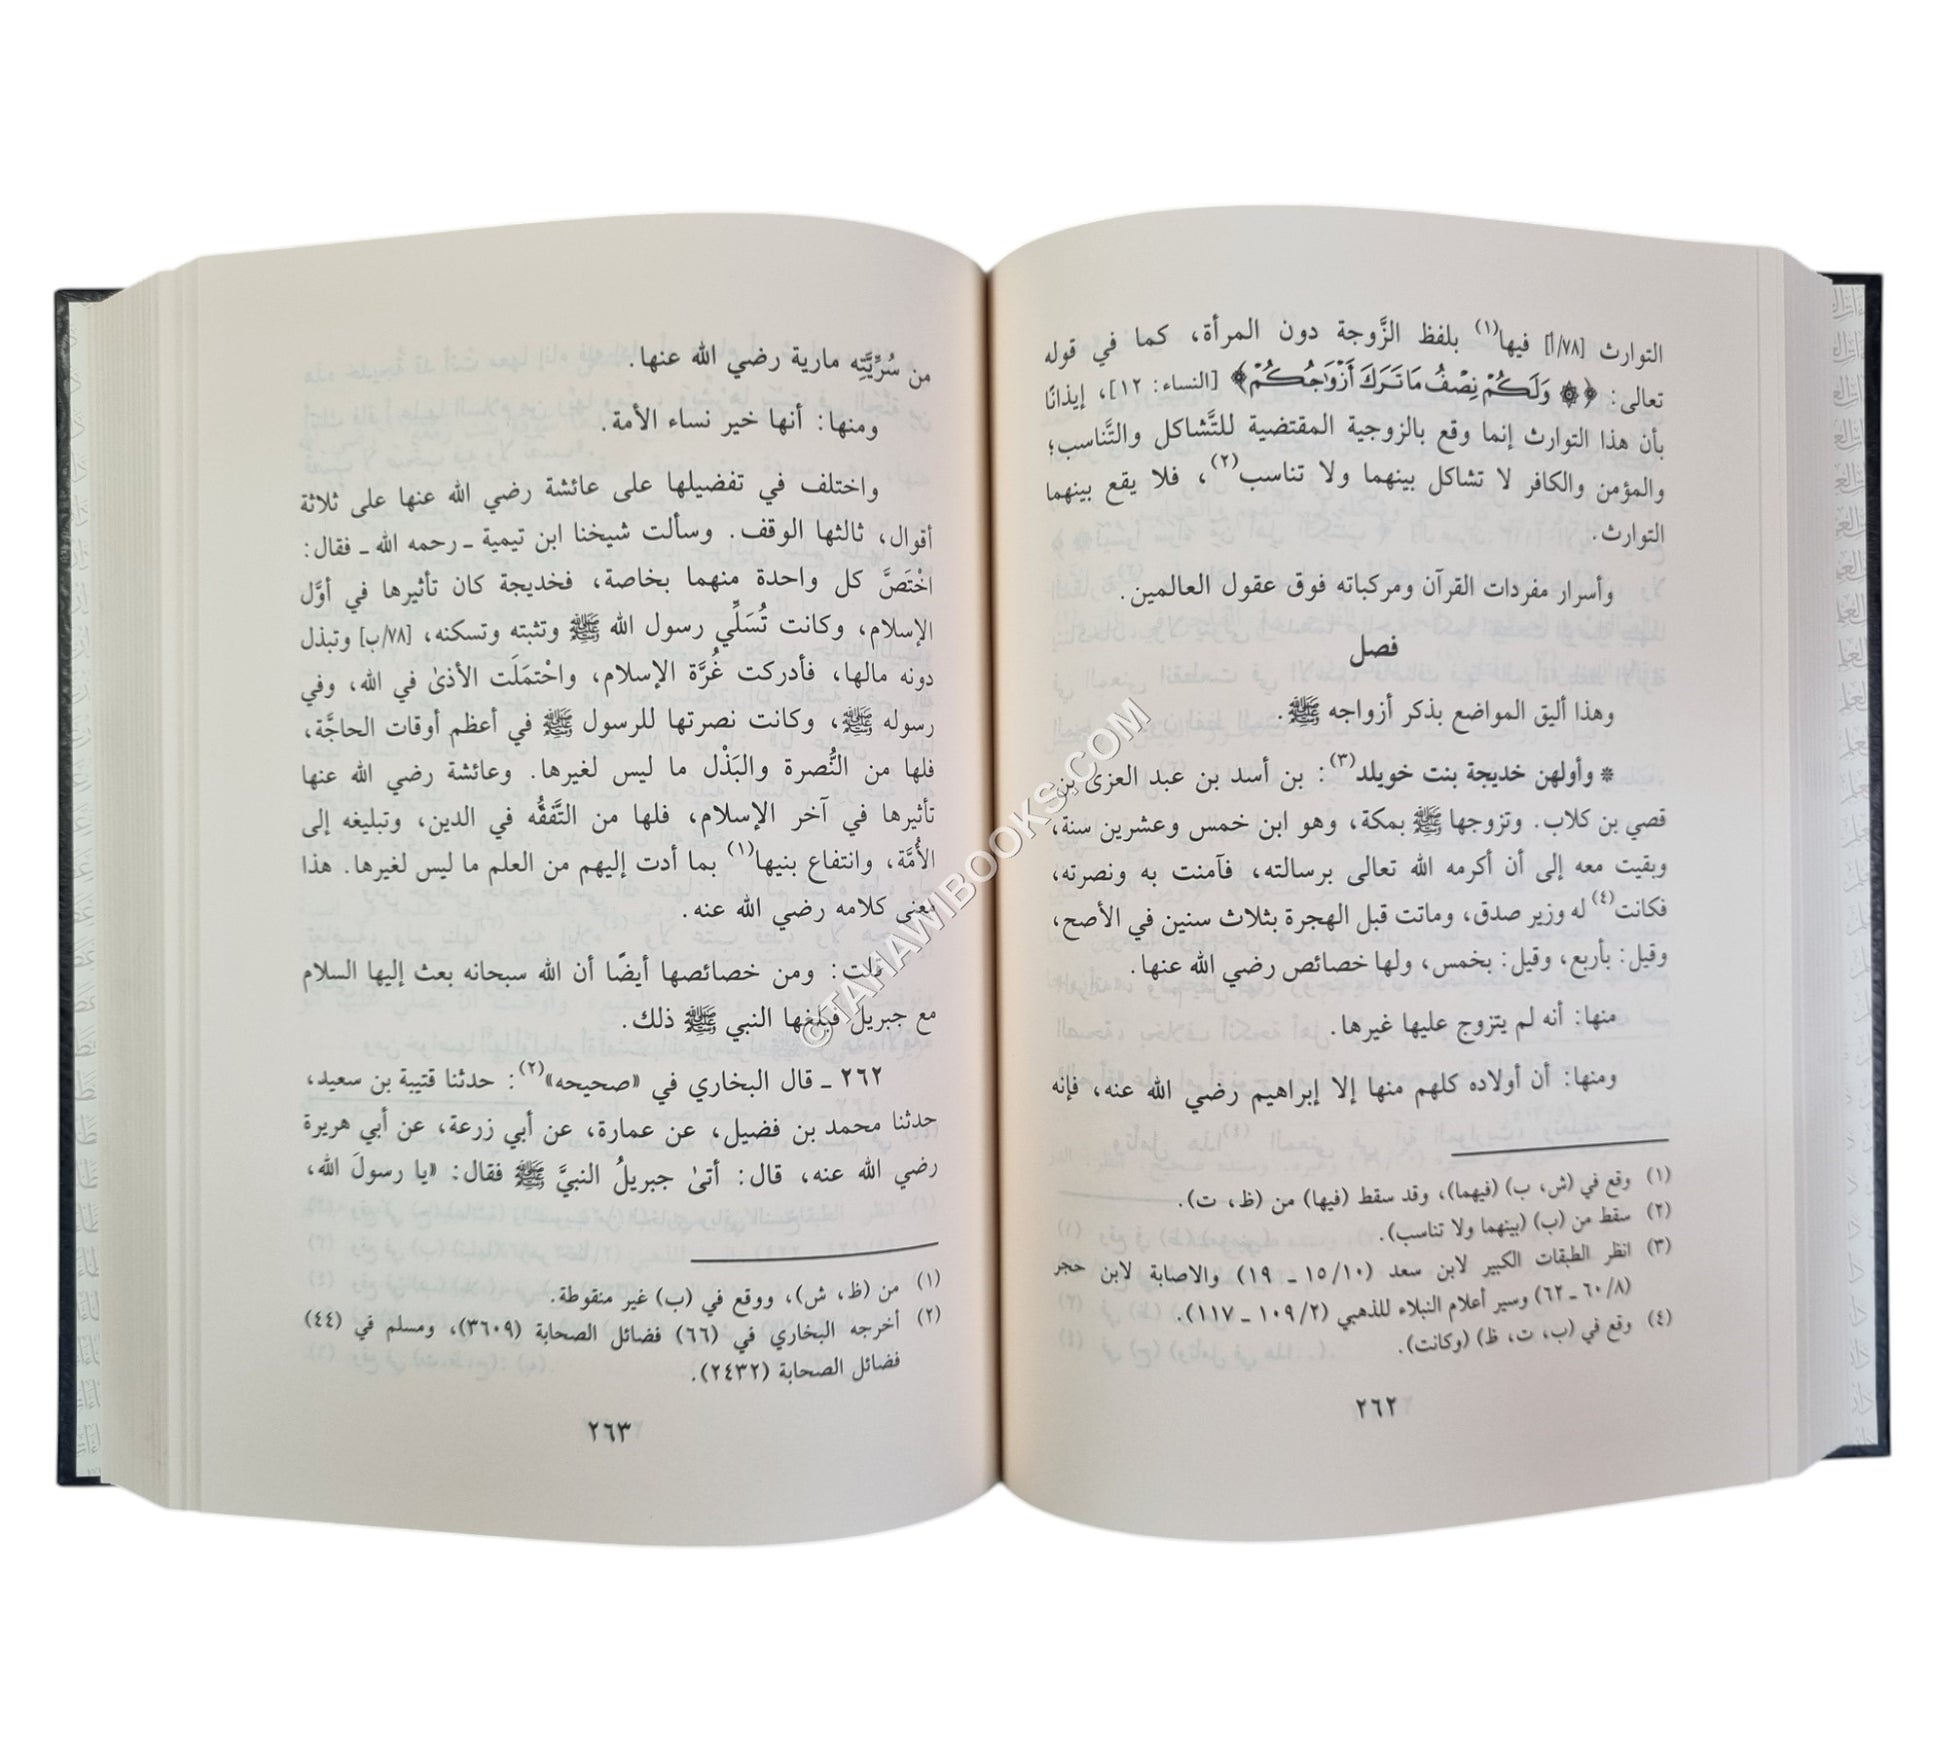 التوارث [٧٨/أ] فيها(١) بلفظ الزَّوجة دون المرأة، كما في قوله
تعالى: ﴿۞ وَلَكُمْ نِصْفُ مَا تَرَكَ أَزْوَاجُكُمْ﴾ [النساء: ١٢]، إيذانًا
بأن هذا التوارث إنما وقع بالزوجية المقتضية للتَّشاكل والتَّناسب؛
والمؤمن والكافر لا تشاكل بينهما ولا تناسب(٢)، فلا يقع بينهما
التوارث.
وأسرار مفردات القرآن ومركباته فوق عقول العالمين.
فصل
وهذا أليق المواضع بذكر أزواجه ﷺ.
* وأولهن خديجة بنت خويلد(٣): بن أسد بن عبد العزى بن
قصي بن كلاب. وتزوجها ﷺ بمكة، وهو ابن خمس وعشرين سنة،
وبقيت معه إلى أن أكرمه الله تعالى برسالته، فآمنت به ونصرته،
فكانت(٤) له وزير صدق، وماتت قبل الهجرة بثلاث سنين في الأصح،
وقيل: بأربع، وقيل: بخمس، ولها خصائص رضي الله عنها.
منها: أنه لم يتزوج عليها غيرها.
ومنها: أن أولاده كلهم منها إلا إبراهيم رضي الله عنه، فإنه
(١) وقع في (ش، ب) (فيهما)، وقد سقط (فيها) من (ظ، ت).
(٢) سقط من (ب) (بينهما ولا تناسب).
(٣) انظر الطبقات الكبير لابن سعد (١٠/ ١٥ ـ ١٩) والاصابة لابن حجر
(٨/ ٦٠ ـ ٦٢) وسير أعلام النبلاء للذهبي (٢/ ١٠٩ ـ ١١٧).
(٤) وقع في (ب، ت، ظ) (وكانت).
٢٦٢
من سُرِّيَّتِه مارية رضي الله عنها.
ومنها: أنها خير نساء الأمة.
واختلف في تفضيلها على عائشة رضي الله عنها على ثلاثة
أقوال، ثالثها الوقف. وسألت شيخنا ابن تيمية ـ رحمه الله ـ فقال:
اخْتَصَّ كل واحدة منهما بخاصة، فخديجة كان تأثيرها في أوَّل
الإسلام، وكانت تُسَلِّي رسول الله ﷺ وتثبته وتسكنه، [٧٨/ب] وتبذل
دونه مالها، فأدركت غُرَّة الإسلام، واحْتمَلَت الأذىٰ في الله، وفي
رسوله ﷺ، وكانت نصرتها للرسول ﷺ في أعظم أوقات الحاجَّة،
فلها من النُّصرة والبَذْل ما ليس لغيرها. وعائشة رضي الله عنها
تأثيرها في آخر الإسلام، فلها من التَّفقُّه في الدين، وتبليغه إلى
الأُمَّة، وانتفاع بنيها(١) بما أدت إليهم من العلم ما ليس لغيرها. هذا
معنى كلامه رضي الله عنه.
قلت: ومن خصائصها أيضًا أن الله سبحانه بعث إليها السلام
مع جبريل فبلغها النبي ﷺ ذلك.
٢٦٢ ـ قال البخاري في «صحيحه»(٢): حدثنا قتيبة بن سعيد،
حدثنا محمد بن فضيل، عن عمارة، عن أبي زرعة، عن أبي هريرة
رضي الله عنه، قال: أتىٰ جبريلُ النبيَّ ﷺ فقال: «يا رسولَ الله،
(١) من (ظ، ش)، ووقع في (ب) غير منقوطة.
(٢) أخرجه البخاري في (٦٦) فضائل الصحابة (٣٦٠٩)، ومسلم في (٤٤)
فضائل الصحابة (٢٤٣٢).
٢٦٣
©TAHAWIBOOKS.COM